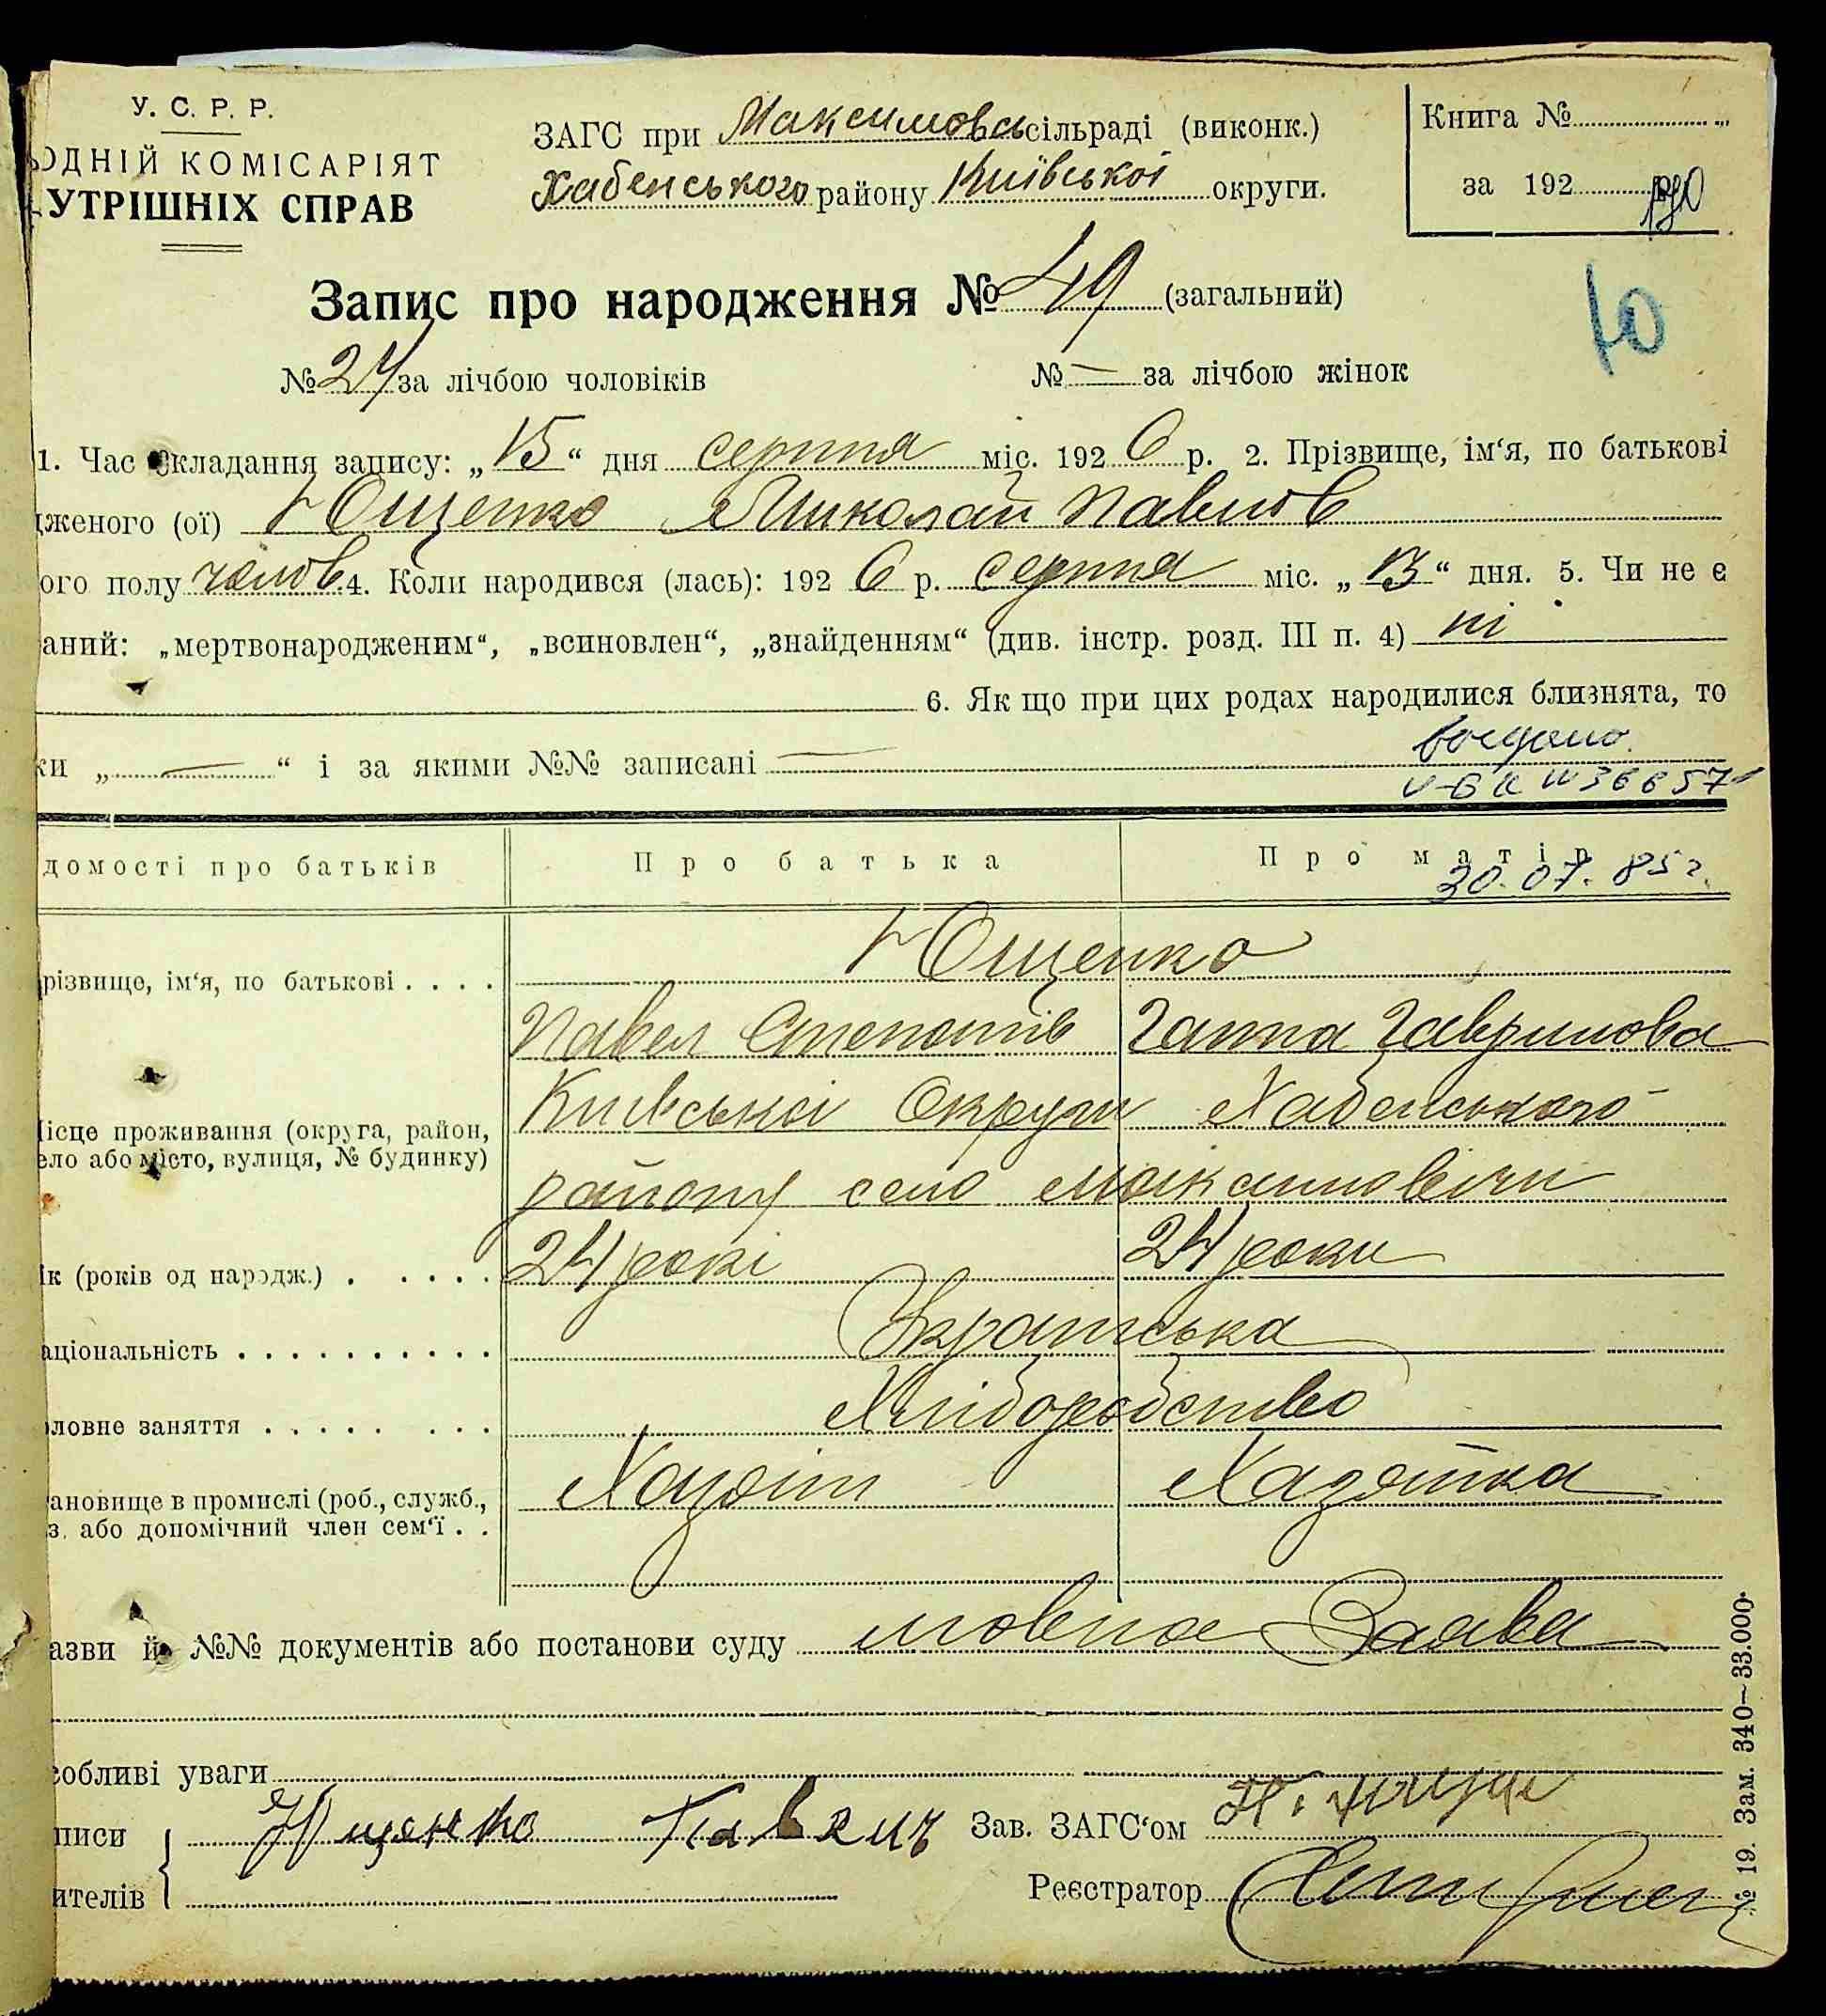 У. С. Р. Р.
ОДНІЙ КОМІСАРІЯТ
УТРІШНІХ СПРАВ
ЗАГС при Максимовс сільраді (виконк.)
Хабенського району Київської округи.
Книга №
за 192
Запис про народження № 49 (загальний)
10
№ 24 за лічбою чоловіків № — за лічбою жінок
1. Час складання запису: „15“ дня серпня міс. 1926 р. 2. Прізвище, ім‘я, по батькові
дженого (ої) Ющенко Миколай Павлов
ого полу чолов 4. Коли народився (лась): 1926 р. серпня міс. „13“ дня. 5. Чи не є
аний: „мертвонародженим“, „всиновлен“, „знайденням“ (див. інстр. розд. III п. 4) ні
6. Як що при цих родах народилися близнята, то
ки „—“ і за якими №№ записані —
36657
20.07.85 г.
домості про батьків Про батька Про матір
Ющенко
різвище, ім‘я, по батькові
Павел Степанів Ганна Гаврилова
Київської Округи Хабенського
ісце проживання (округа, район,
ело або місто, вулиця, № будинку)
району село Максимовічи
ік (років од народж.) 24 рокі 24 роки
аціональність Українська
ловне заняття Хліборобство
Хазяін Хазяйка
ановище в промислі (роб., служб.,
з. або допомічний член сем‘ї
азви й №№ документів або постанови суду мовна Заява
собливі уваги
писи Ющенко Зав. ЗАГС‘ом
ителів Реєстратор
№ 19. Зам. 340—33.000.